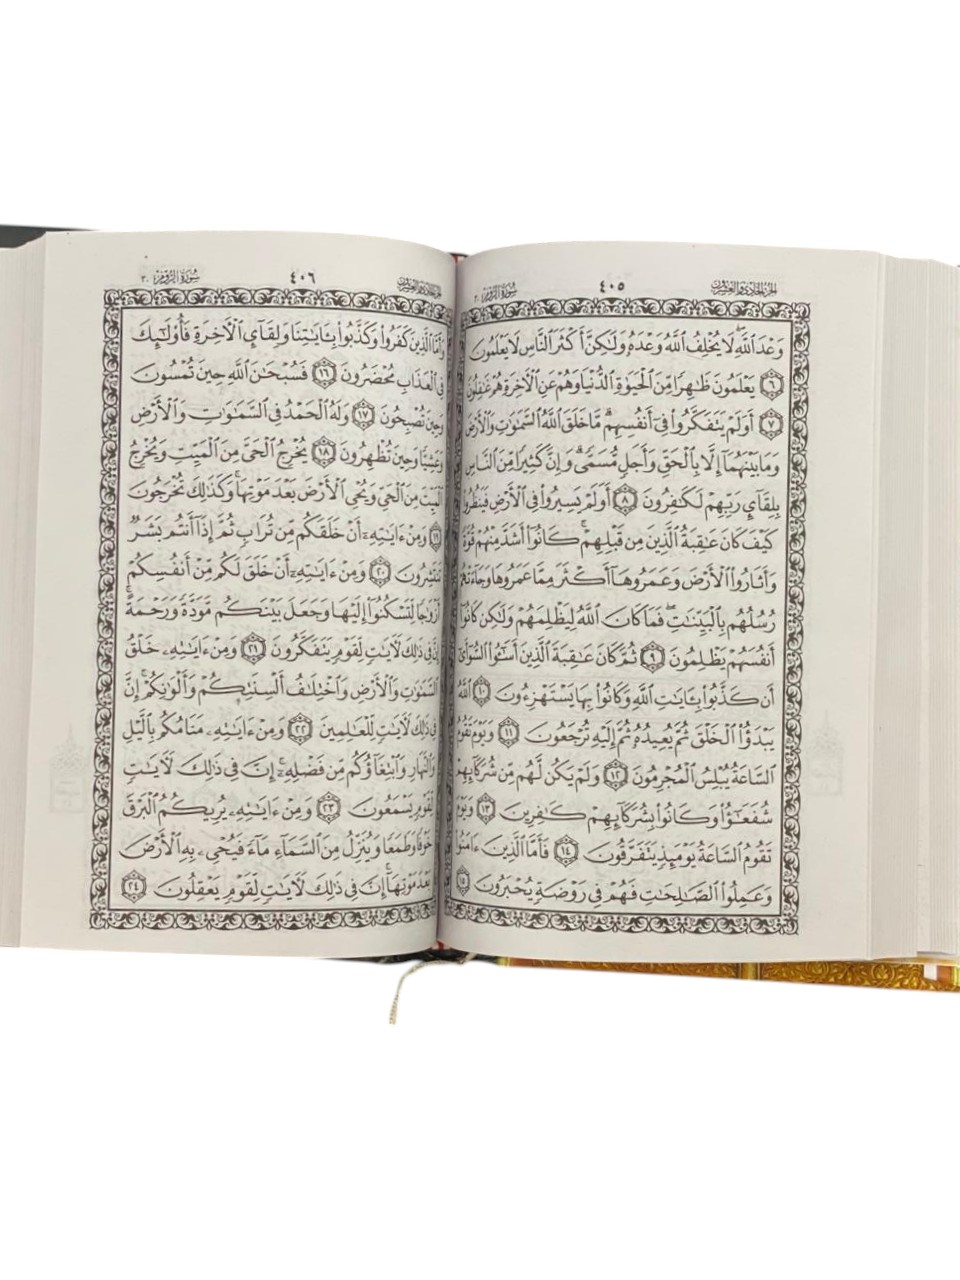 الجزء الحادي والعشرون
٤٠٥
سورة الروم ٣٠
وَعْدَ اللَّهِ لَا يُخْلِفُ اللَّهُ وَعْدَهُ وَلَٰكِنَّ أَكْثَرَ النَّاسِ لَا يَعْلَمُونَ
٦ يَعْلَمُونَ ظَٰهِرًا مِّنَ الْحَيَوٰةِ الدُّنْيَا وَهُمْ عَنِ الْآخِرَةِ هُمْ غَٰفِلُونَ
٧ أَوَلَمْ يَتَفَكَّرُوا فِي أَنفُسِهِم مَّا خَلَقَ اللَّهُ السَّمَٰوَٰتِ وَالْأَرْضَ
وَمَا بَيْنَهُمَا إِلَّا بِالْحَقِّ وَأَجَلٍ مُّسَمًّى وَإِنَّ كَثِيرًا مِّنَ النَّاسِ
بِلِقَآئِ رَبِّهِمْ لَكَٰفِرُونَ ٨ أَوَلَمْ يَسِيرُوا فِي الْأَرْضِ فَيَنظُرُوا
كَيْفَ كَانَ عَٰقِبَةُ الَّذِينَ مِن قَبْلِهِمْ كَانُوا أَشَدَّ مِنْهُمْ قُوَّةً
وَأَثَارُوا الْأَرْضَ وَعَمَرُوهَا أَكْثَرَ مِمَّا عَمَرُوهَا وَجَآءَتْهُمْ
رُسُلُهُم بِالْبَيِّنَٰتِ فَمَا كَانَ اللَّهُ لِيَظْلِمَهُمْ وَلَٰكِن كَانُوا
أَنفُسَهُمْ يَظْلِمُونَ ٩ ثُمَّ كَانَ عَٰقِبَةَ الَّذِينَ أَسَٰٓـُٔوا السُّوأَىٰ
أَن كَذَّبُوا بِـَٔايَٰتِ اللَّهِ وَكَانُوا بِهَا يَسْتَهْزِءُونَ ١٠ اللَّهُ
يَبْدَؤُا الْخَلْقَ ثُمَّ يُعِيدُهُ ثُمَّ إِلَيْهِ تُرْجَعُونَ ١١ وَيَوْمَ تَقُومُ
السَّاعَةُ يُبْلِسُ الْمُجْرِمُونَ ١٢ وَلَمْ يَكُن لَّهُم مِّن شُرَكَآئِهِمْ
شُفَعَٰٓؤُا وَكَانُوا بِشُرَكَآئِهِمْ كَٰفِرِينَ ١٣ وَيَوْمَ
تَقُومُ السَّاعَةُ يَوْمَئِذٍ يَتَفَرَّقُونَ ١٤ فَأَمَّا الَّذِينَ ءَامَنُوا
وَعَمِلُوا الصَّٰلِحَٰتِ فَهُمْ فِي رَوْضَةٍ يُحْبَرُونَ ١٥
الجزء الحادي والعشرون
٤٠٦
سورة الروم ٣٠
وَأَمَّا الَّذِينَ كَفَرُوا وَكَذَّبُوا بِـَٔايَٰتِنَا وَلِقَآئِ الْآخِرَةِ فَأُولَٰٓئِكَ
فِي الْعَذَابِ مُحْضَرُونَ ١٦ فَسُبْحَٰنَ اللَّهِ حِينَ تُمْسُونَ
وَحِينَ تُصْبِحُونَ ١٧ وَلَهُ الْحَمْدُ فِي السَّمَٰوَٰتِ وَالْأَرْضِ
وَعَشِيًّا وَحِينَ تُظْهِرُونَ ١٨ يُخْرِجُ الْحَيَّ مِنَ الْمَيِّتِ وَيُخْرِجُ
الْمَيِّتَ مِنَ الْحَيِّ وَيُحْيِ الْأَرْضَ بَعْدَ مَوْتِهَا وَكَذَٰلِكَ تُخْرَجُونَ
١٩ وَمِنْ ءَايَٰتِهِ أَنْ خَلَقَكُم مِّن تُرَابٍ ثُمَّ إِذَا أَنتُم بَشَرٌ
تَنتَشِرُونَ ٢٠ وَمِنْ ءَايَٰتِهِ أَنْ خَلَقَ لَكُم مِّنْ أَنفُسِكُمْ
أَزْوَٰجًا لِّتَسْكُنُوا إِلَيْهَا وَجَعَلَ بَيْنَكُم مَّوَدَّةً وَرَحْمَةً
إِنَّ فِي ذَٰلِكَ لَآيَٰتٍ لِّقَوْمٍ يَتَفَكَّرُونَ ٢١ وَمِنْ ءَايَٰتِهِ خَلْقُ
السَّمَٰوَٰتِ وَالْأَرْضِ وَاخْتِلَٰفُ أَلْسِنَتِكُمْ وَأَلْوَٰنِكُمْ إِنَّ
فِي ذَٰلِكَ لَآيَٰتٍ لِّلْعَٰلِمِينَ ٢٢ وَمِنْ ءَايَٰتِهِ مَنَامُكُم بِالَّيْلِ
وَالنَّهَارِ وَابْتِغَآؤُكُم مِّن فَضْلِهِ إِنَّ فِي ذَٰلِكَ لَآيَٰتٍ
لِّقَوْمٍ يَسْمَعُونَ ٢٣ وَمِنْ ءَايَٰتِهِ يُرِيكُمُ الْبَرْقَ
خَوْفًا وَطَمَعًا وَيُنَزِّلُ مِنَ السَّمَآءِ مَآءً فَيُحْيِ بِهِ الْأَرْضَ
بَعْدَ مَوْتِهَا إِنَّ فِي ذَٰلِكَ لَآيَٰتٍ لِّقَوْمٍ يَعْقِلُونَ ٢٤